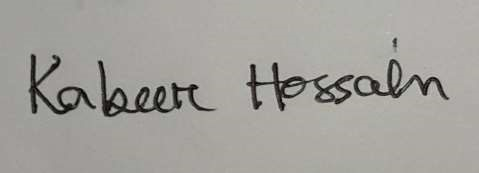 Kabeer Hossain